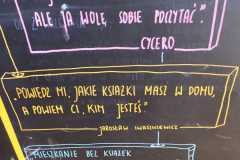 ALE JA WOLĘ SOBIE POCZYTAĆ".
CYCERO
„POWIEDZ MI, JAKIE KSIĄŻKI MASZ W DOMU,
A POWIEM CI, KIM JESTEŚ"
JAROSŁAW IWASZKIEWICZ
MIESZKANIE BEZ KSIĄŻEK